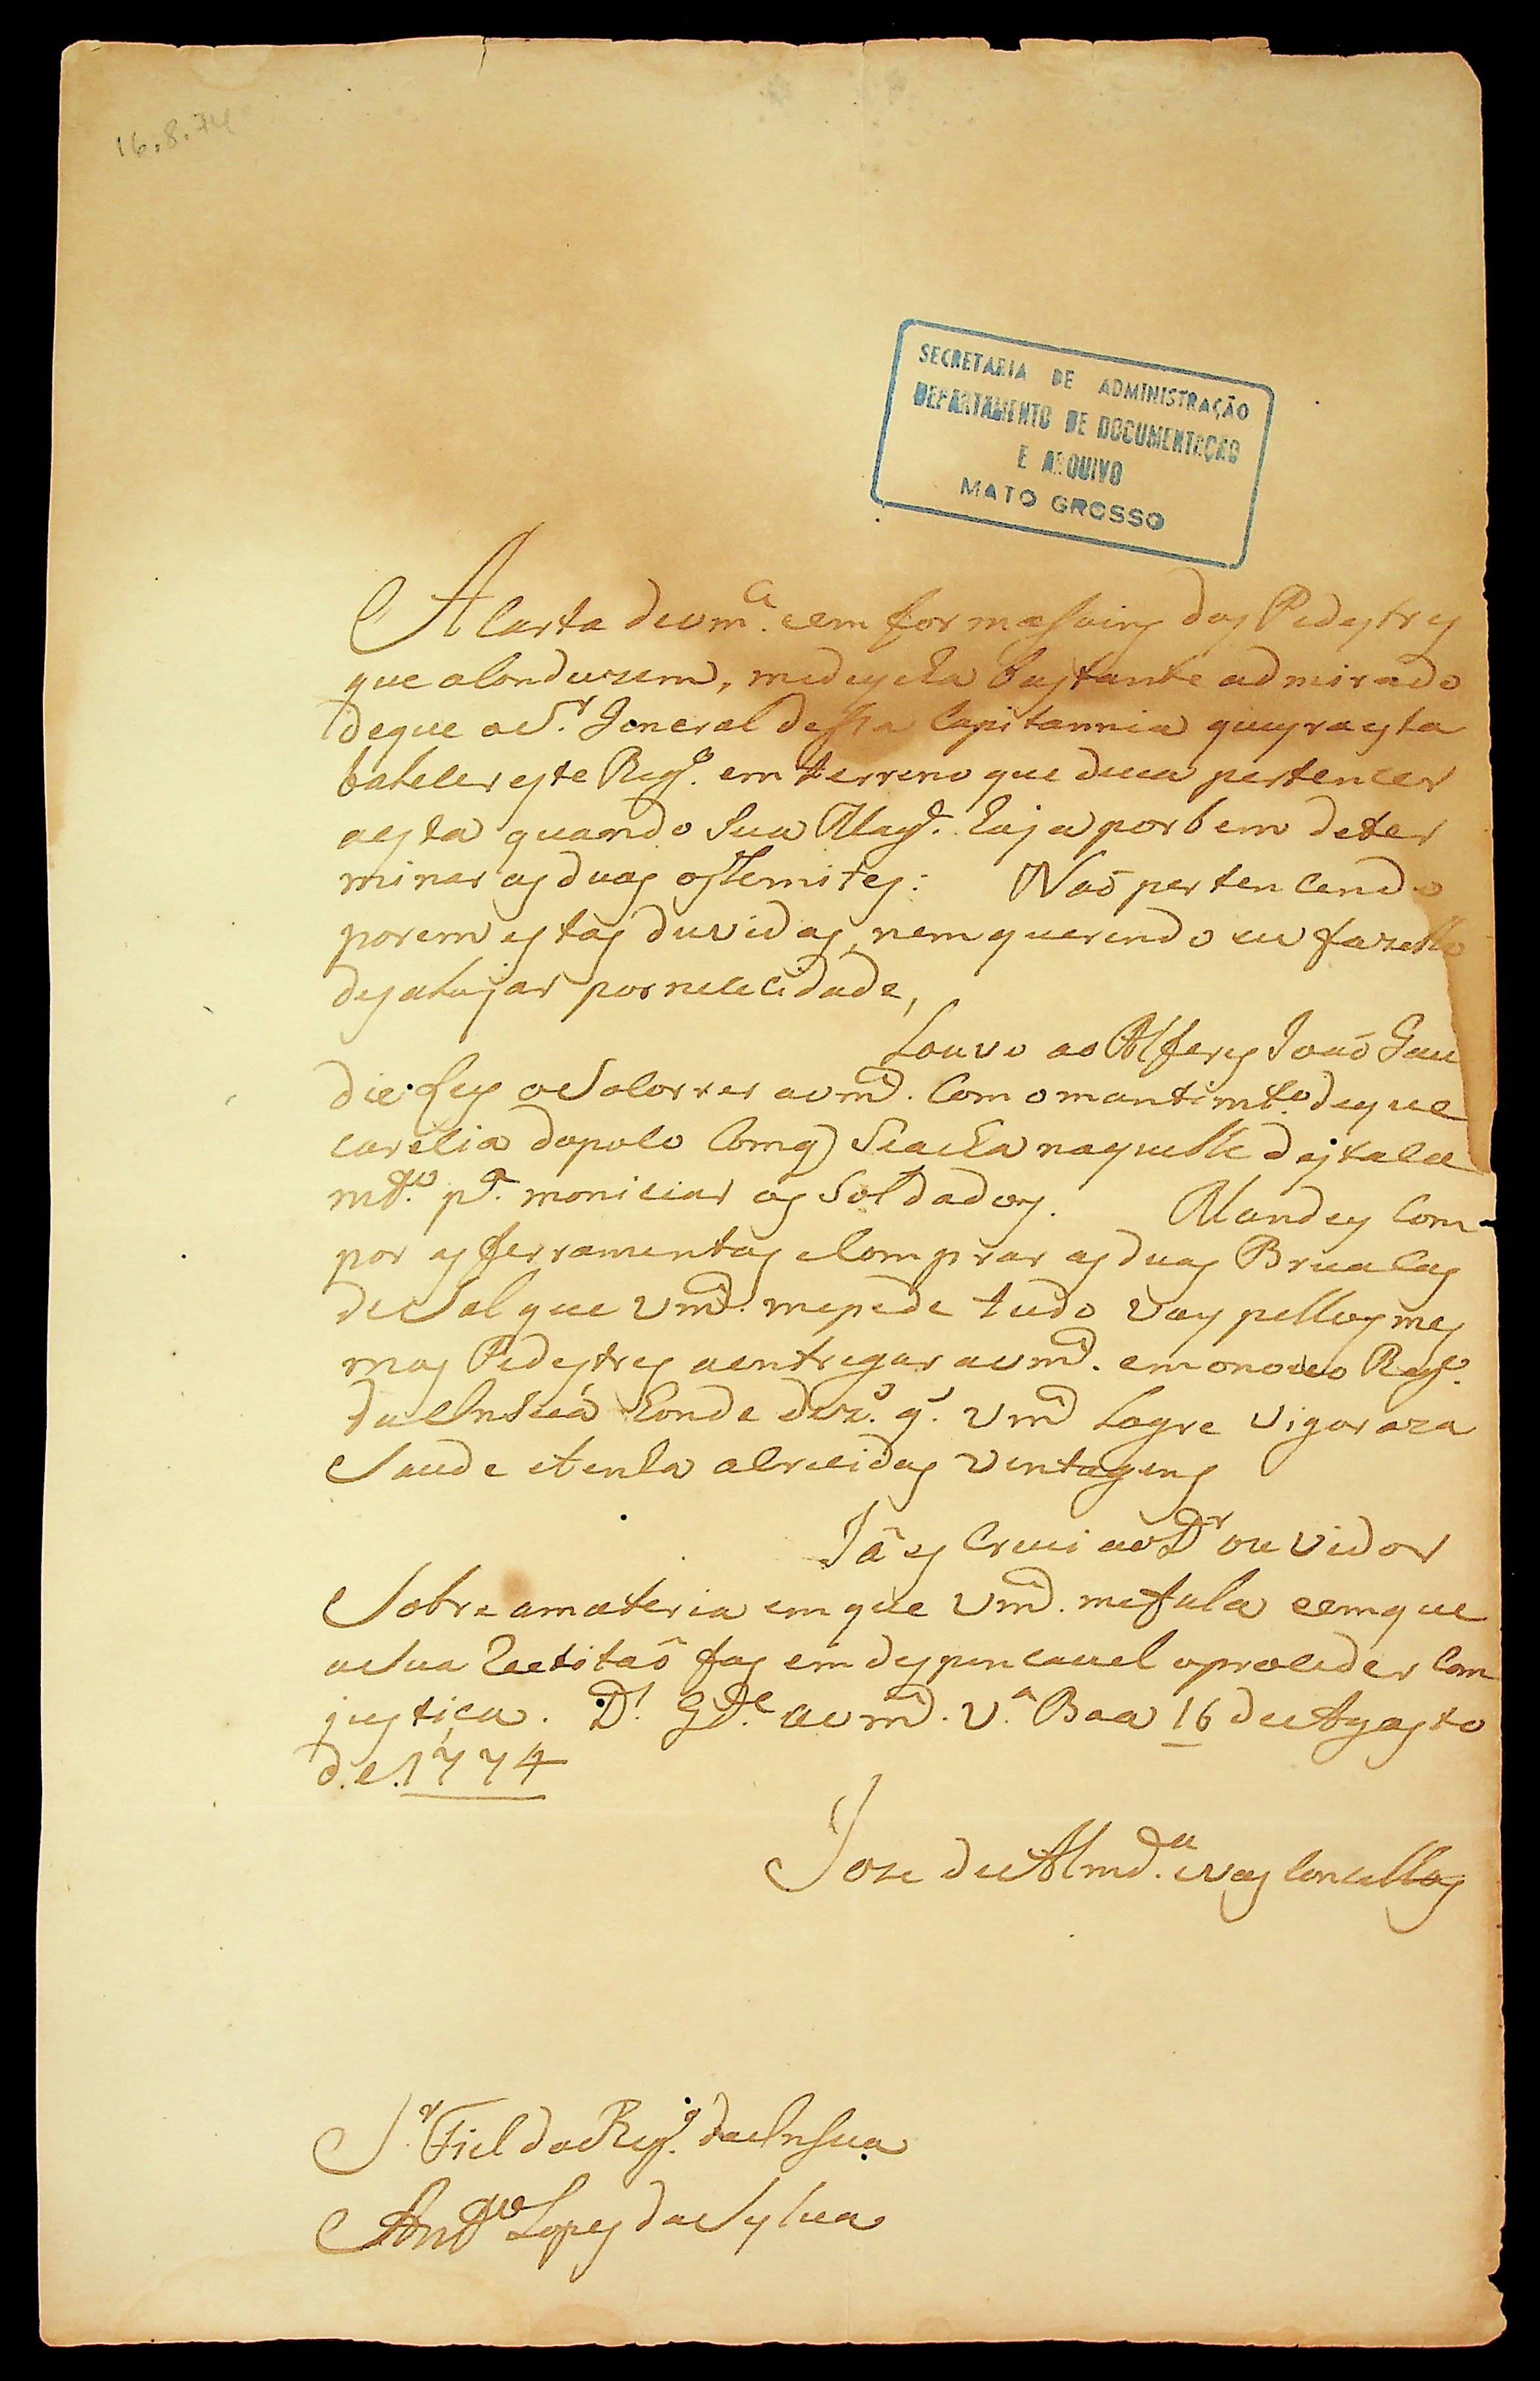 16.8.74
SECRETARIA DE ADMINISTRAÇÃO
DEPARTAMENTO DE DOCUMENTAÇÃO
E ARQUIVO
MATO GROSSO
A Carta de vm.ce e em formasoins dos Pedestres
que a Conduzem, me deycha bastante admirado
de que o Sr. General dessa Capitannia queyra esta
baleser este Reg.o em terreno que deua pertencer
a esta quando Sua Mag.e haja por bem deter
minar as duas os Lemites: Naõ pertencendo
porem estas duvidas, nem querendo eu fazello
desalojar por nececidade,
Louvo ao Alferes Joaõ Gau
die Ley o Socorrer a vmd. Com o mantim.to de que
carecia do polo Comq) Se acha naquelle destaca
mt.o p.a moniciar os Soldados. Mandey Com
por as ferramentas e Comprar as duas Bruacas
de Sal que vmd. me pede tudo vay pellos mes
mos Pedestres a entregar a vmd. em o novo Reg.o
da Insua honde dez.o q.e vmd Logre vigoraza
Saude e tenha a Crecidas ventagens
Já escrevi ao Dr ouvidor
Sobre a materia em que vmd. me fala e em que
a Sua Rectitaõ fas emdespencauel o proceder Com
justiça. D.s G.de a vmd. V.a Boa 16 de Agosto
d.e.1774
Joze de Almd.a e Vasconcellos
Sr. Fiel do Reg.o da Insua
Ant.o Lopes da Sylua